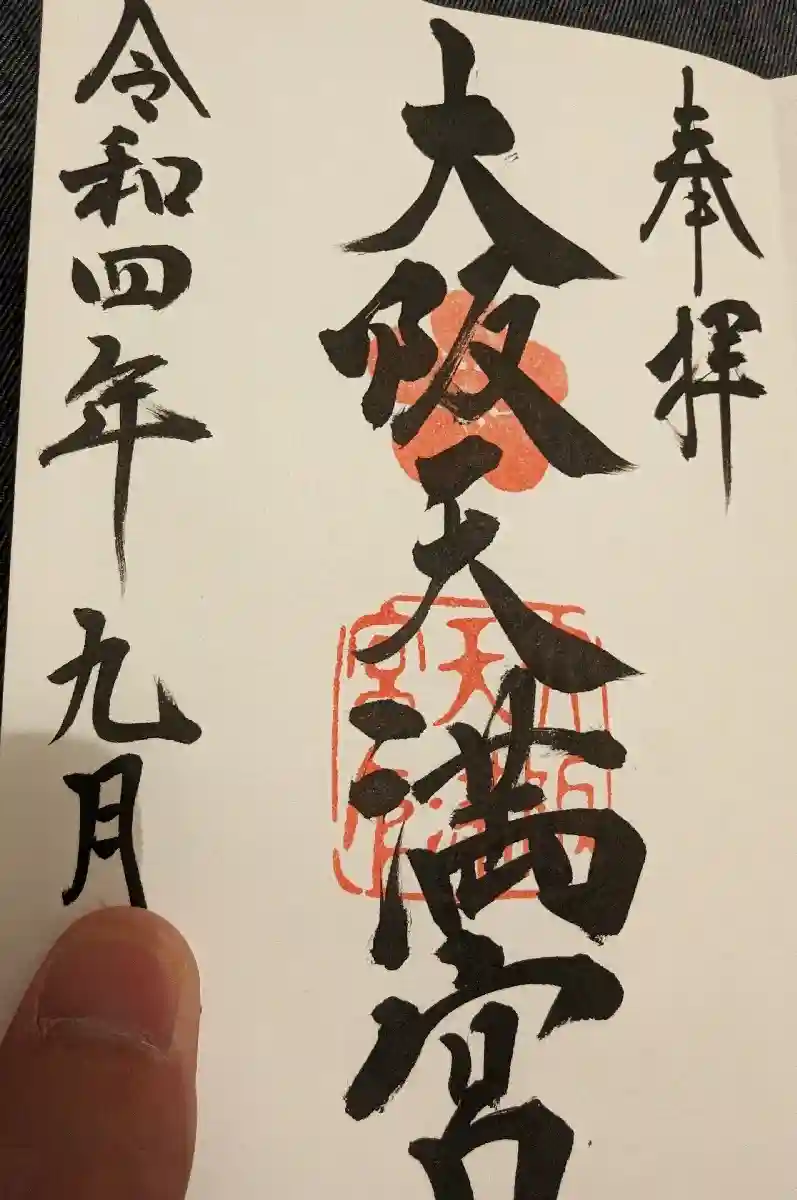 奉拝
大阪天満宮
令和四年九月
大阪
天満
宮